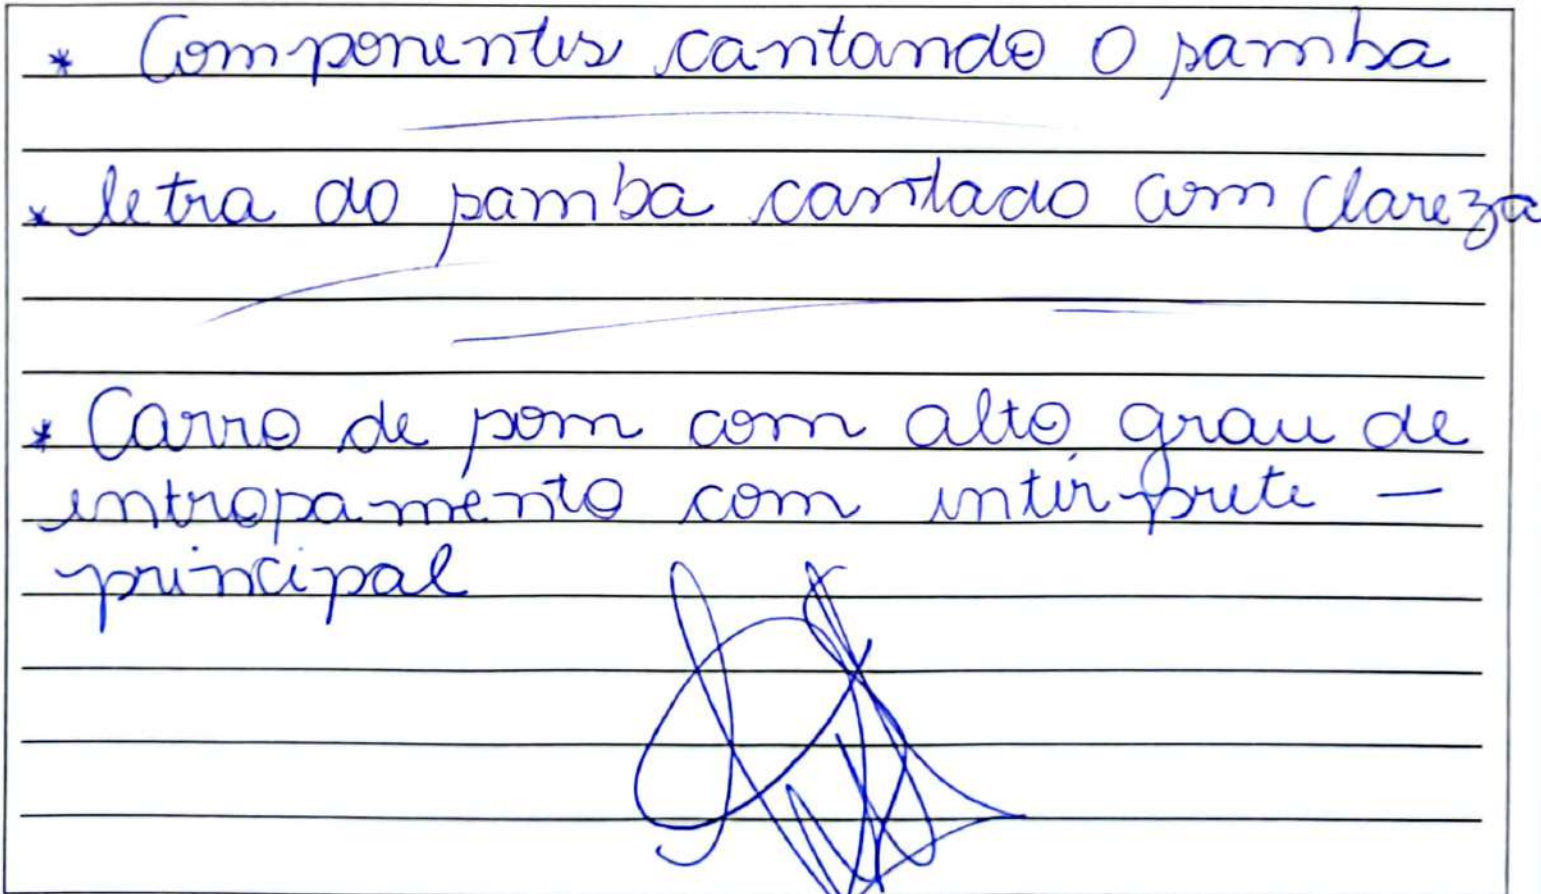 * Componentes cantando o samba
* letra do samba cantado com clareza
* Carro de som com alto grau de
entrosamento com intérprete –
principal